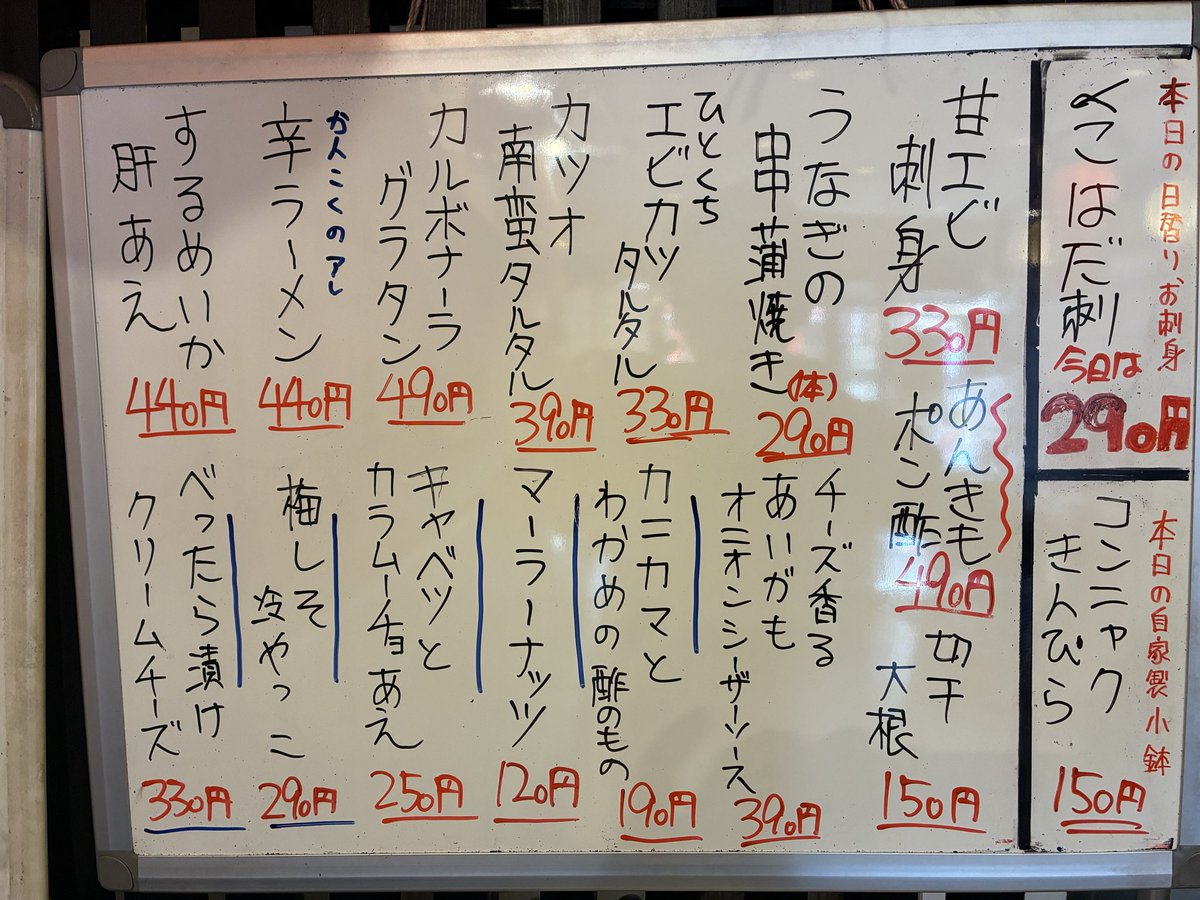 本日の日替りお刺身
〆こはだ刺
今日は
290円
本日の自家製小鉢
コンニャク
きんぴら
150円
甘エビ
刺身
330円
あんきも
ポン酢
490円
切干
大根
150円
うなぎの
串蒲焼き
(1本)
290円
ひとくち
エビカツ
タルタル
330円
カツオ
南蛮タルタル
390円
カルボナーラ
グラタン
490円
かんこくのアレ
辛ラーメン
440円
するめいか
肝あえ
440円
チーズ香る
あいがも
オニオンシーザーソース
390円
カニカマと
わかめの酢のもの
190円
マーラーナッツ
120円
キャベツと
カラムーチョあえ
250円
梅しそ
冷やっこ
290円
べったら漬け
クリームチーズ
330円